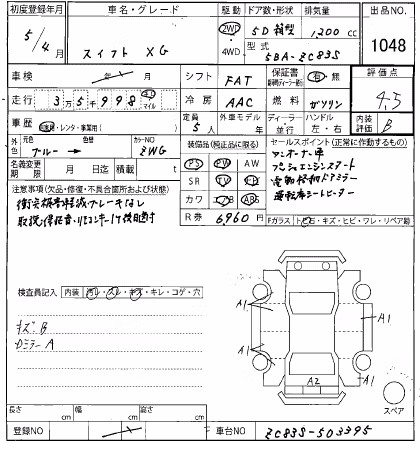 初度登録年月 車名・グレード 駆動 ドア数・形状 排気量 出品NO.
5/4 スイフト XG 2WD ・ 4WD 5D 箱型 1,200 cc 1048
型式 5BA-ZC83S
車検 年 月 シフト FAT 保証書 有 無 評価点
走行 3万5千998 キロ マイル 冷房 AAC 燃料 ガソリン 4.5
車歴 自家用・レンタ・事業用( ) 定員 5人 外車モデル 年 ディーラー・並行 ハンドル 左・右 内装 B
外色 元色 ブルー → 色替 カラーNO ZWG
名義変更期限 月 日迄 積載 t
装備品(純正品に限る) セールスポイント(正常に作動するもの)
PS PW AW
SR TV ナビ
カワ エアB ABS
R券 6,960 円
ワンオーナー車
プッシュエンジンスタート
電動格納ドアミラー
運転席シートヒーター
注意事項(欠品・修復・不具合個所および状態)
衝突被害軽減ブレーキなし
取説・保証書・リモコンキー1ケ後日渡
Fガラス トビ石・キズ・ヒビ・ワレ・リペア跡
検査員記入 内装 汚レ・スレ・キズ・キレ・コゲ・穴
キズB
Dミラー A
A1
A1
A1
A1
A2
スペア
長さ cm 幅 cm 高さ cm
登録NO 車台NO ZC83S-503395